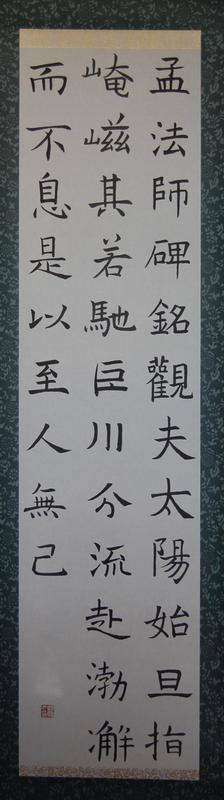 孟法師碑銘觀夫太陽始旦指
崦嵫其若馳巨川分流赴渤澥
而不息是以至人無己